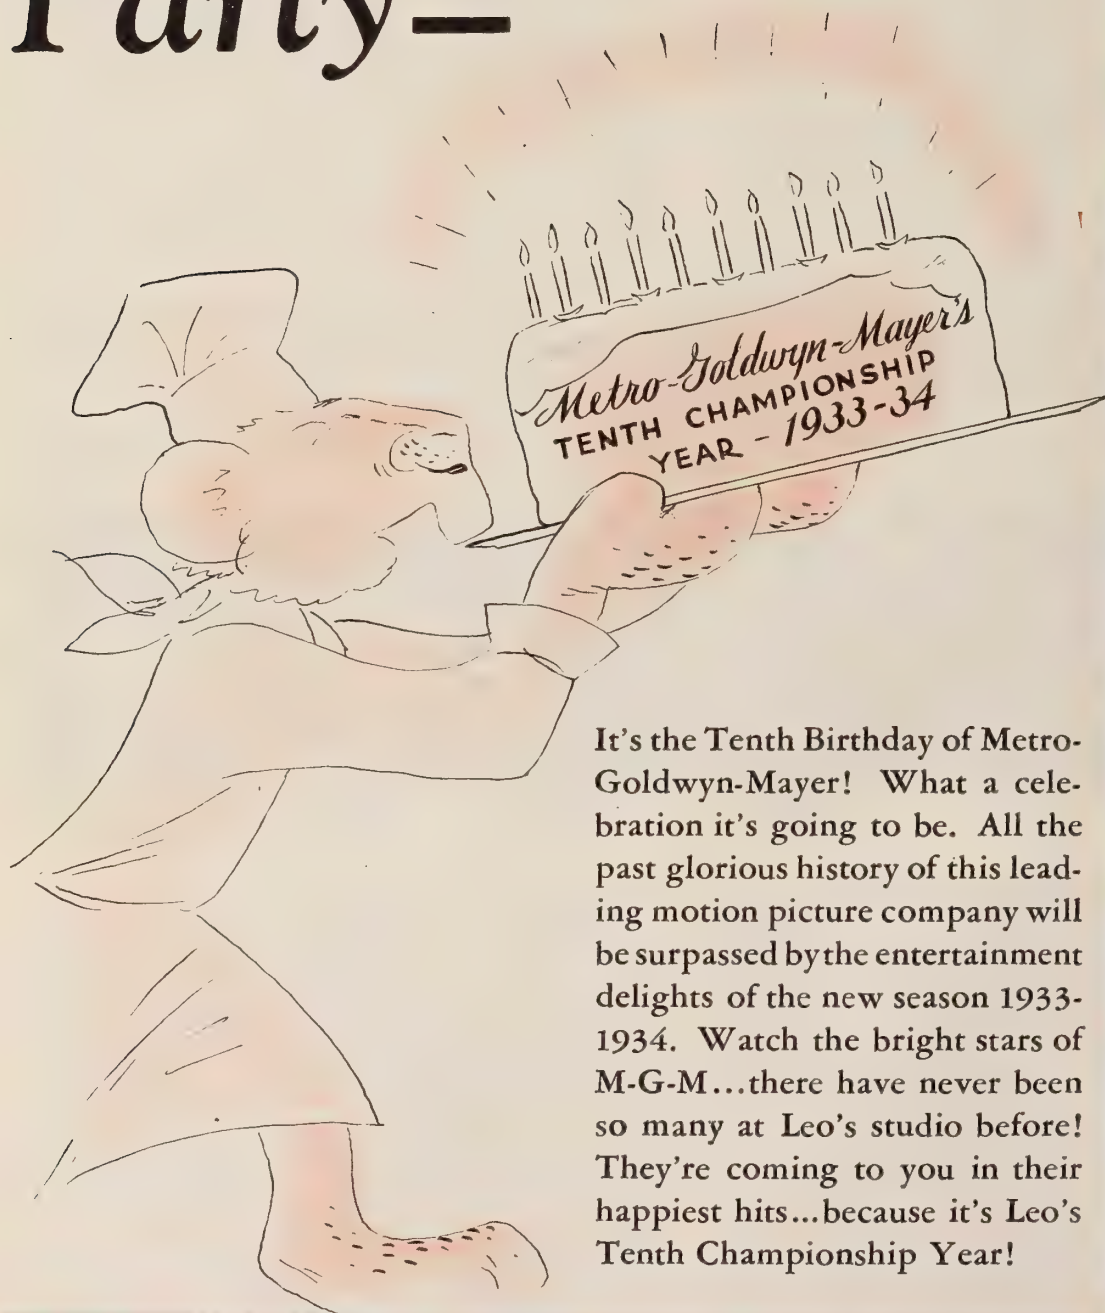 Party—
Metro-Goldwyn-Mayer's
TENTH CHAMPIONSHIP
YEAR - 1933-34
It's the Tenth Birthday of Metro-
Goldwyn-Mayer! What a cele-
bration it's going to be. All the
past glorious history of this lead-
ing motion picture company will
be surpassed by the entertainment
delights of the new season 1933-
1934. Watch the bright stars of
M-G-M...there have never been
so many at Leo's studio before!
They're coming to you in their
happiest hits...because it's Leo's
Tenth Championship Year!